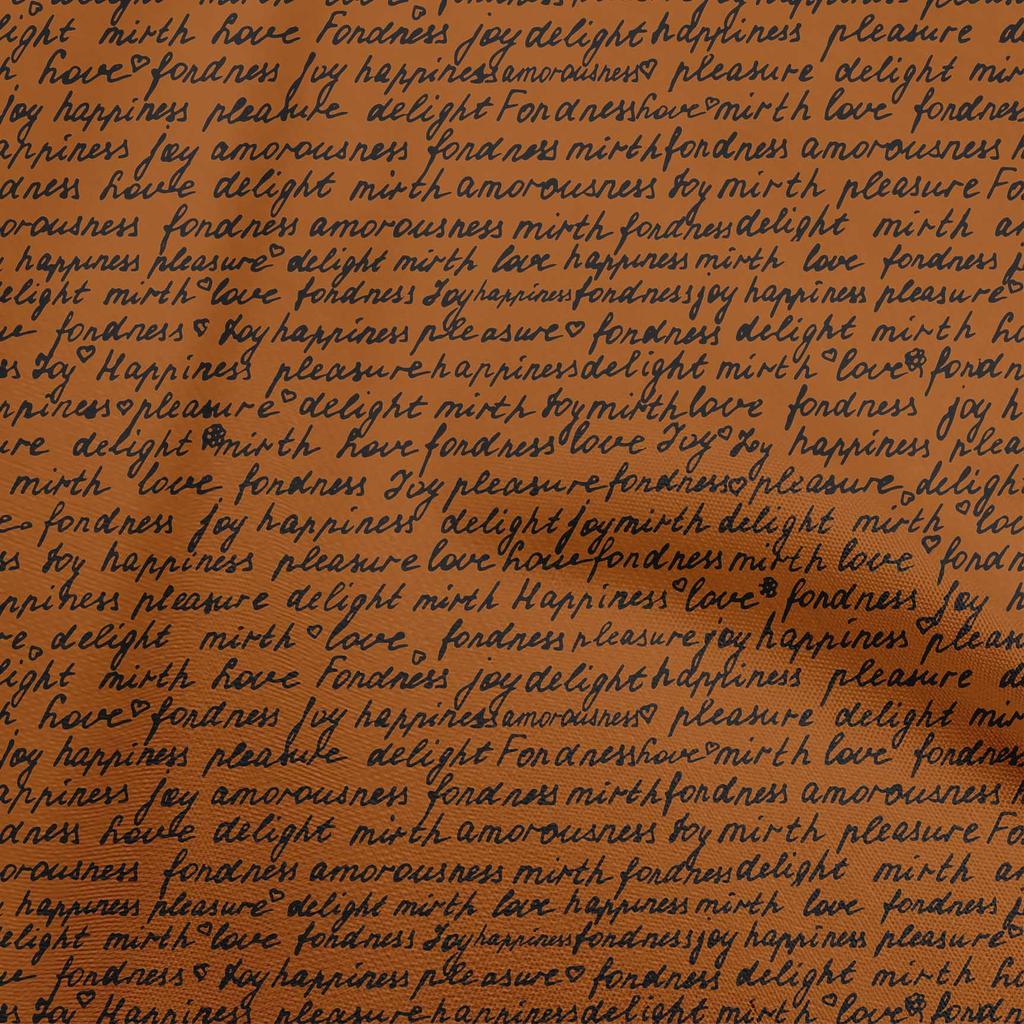 delight mirth love fondness joy delight happiness pleasure
light mirth love Fondness joy delight happiness pleasure
love fondness joy happiness amorousness pleasure delight mir
joy happiness pleasure delight Fondness love mirth love fondness
appiness joy amorousness fondness mirth fondness amorousness
dness love delight mirth amorousness Joy mirth pleasure Fo
orousness fondness amorousness mirth fondness delight mirth
happiness pleasure delight mirth love happiness mirth love fondness
elight mirth love fondness Joy happiness fondness joy happiness pleasure
fondness Joy happiness pleasure fondness delight mirth
ss Joy Happiness pleasure happiness delight mirth love fondn
ppiness pleasure delight mirth Joy mirth love fondness joy h
ure delight mirth love fondness love Joy Joy happiness plea
mirth love fondness Joy pleasure fondness pleasure delight
e fondness joy happiness delight joy mirth delight mirth lov
ss Joy happiness pleasure love love fondness mirth love fondn
ppiness pleasure delight mirth Happiness love fondness joy h
re delight mirth love fondness pleasure joy happiness pleas
light mirth love Fondness joy delight happiness pleasure
love fondness joy happiness amorousness pleasure delight mir
joy happiness pleasure delight Fondness love mirth love fondness
appiness joy amorousness fondness mirth fondness amorousness
dness love delight mirth amorousness Joy mirth pleasure Fo
orousness fondness amorousness mirth fondness delight mirth
happiness pleasure delight mirth love happiness mirth love fondness
elight mirth love fondness Joy happiness fondness joy happiness pleasure
fondness Joy happiness pleasure fondness delight mirth
ss Joy Happiness pleasure happiness delight mirth love fondn